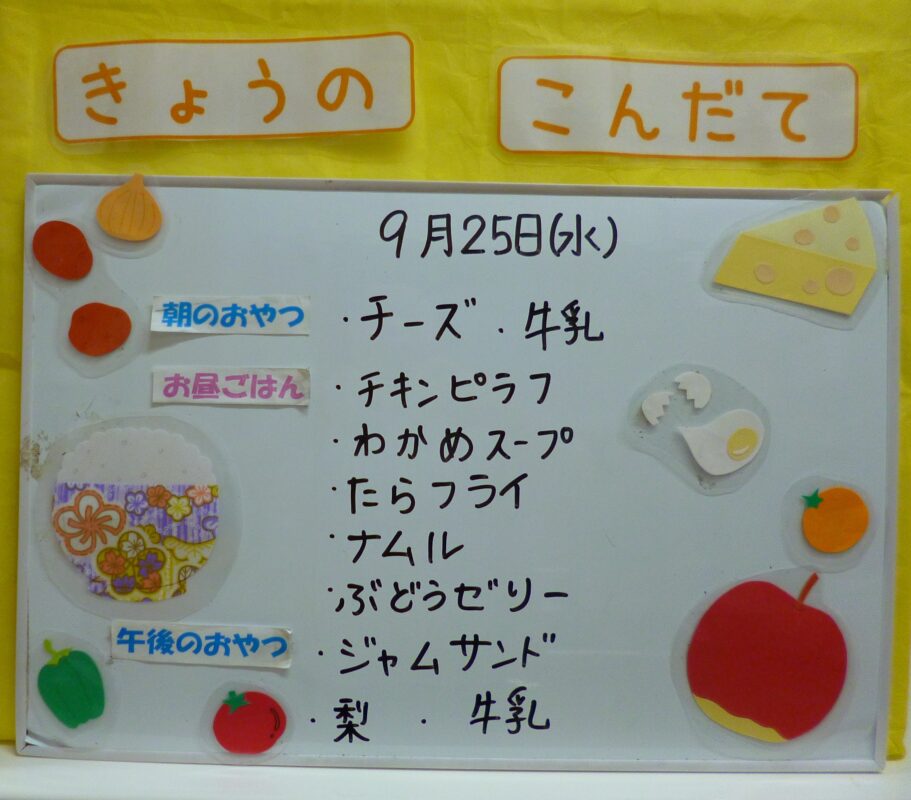 きょうの こんだて
9月25日(水)
朝のおやつ ・チーズ ・牛乳
お昼ごはん ・チキンピラフ
・わかめスープ
・たらフライ
・ナムル
・ぶどうゼリー
午後のおやつ ・ジャムサンド
・梨 ・牛乳